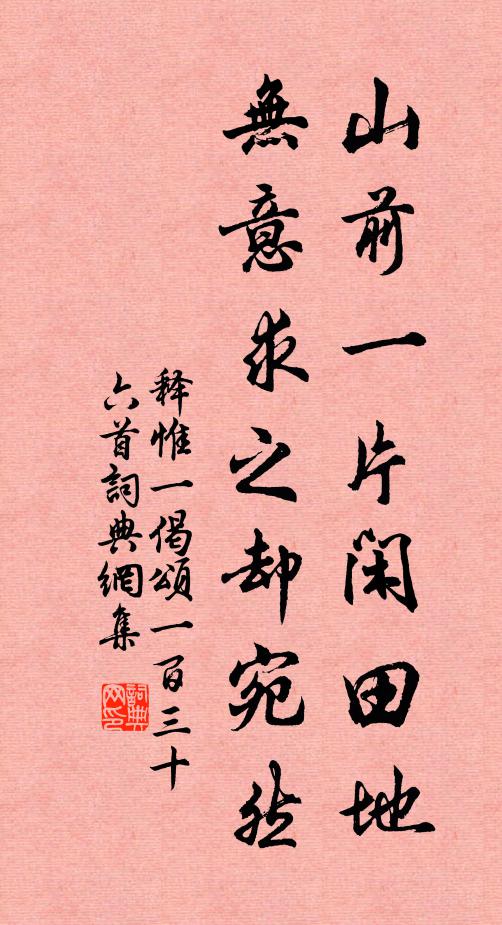 山前一片閑田地
無意求之却宛然
释惟一偈頌一百三十
六首詞典網集
詞典网印